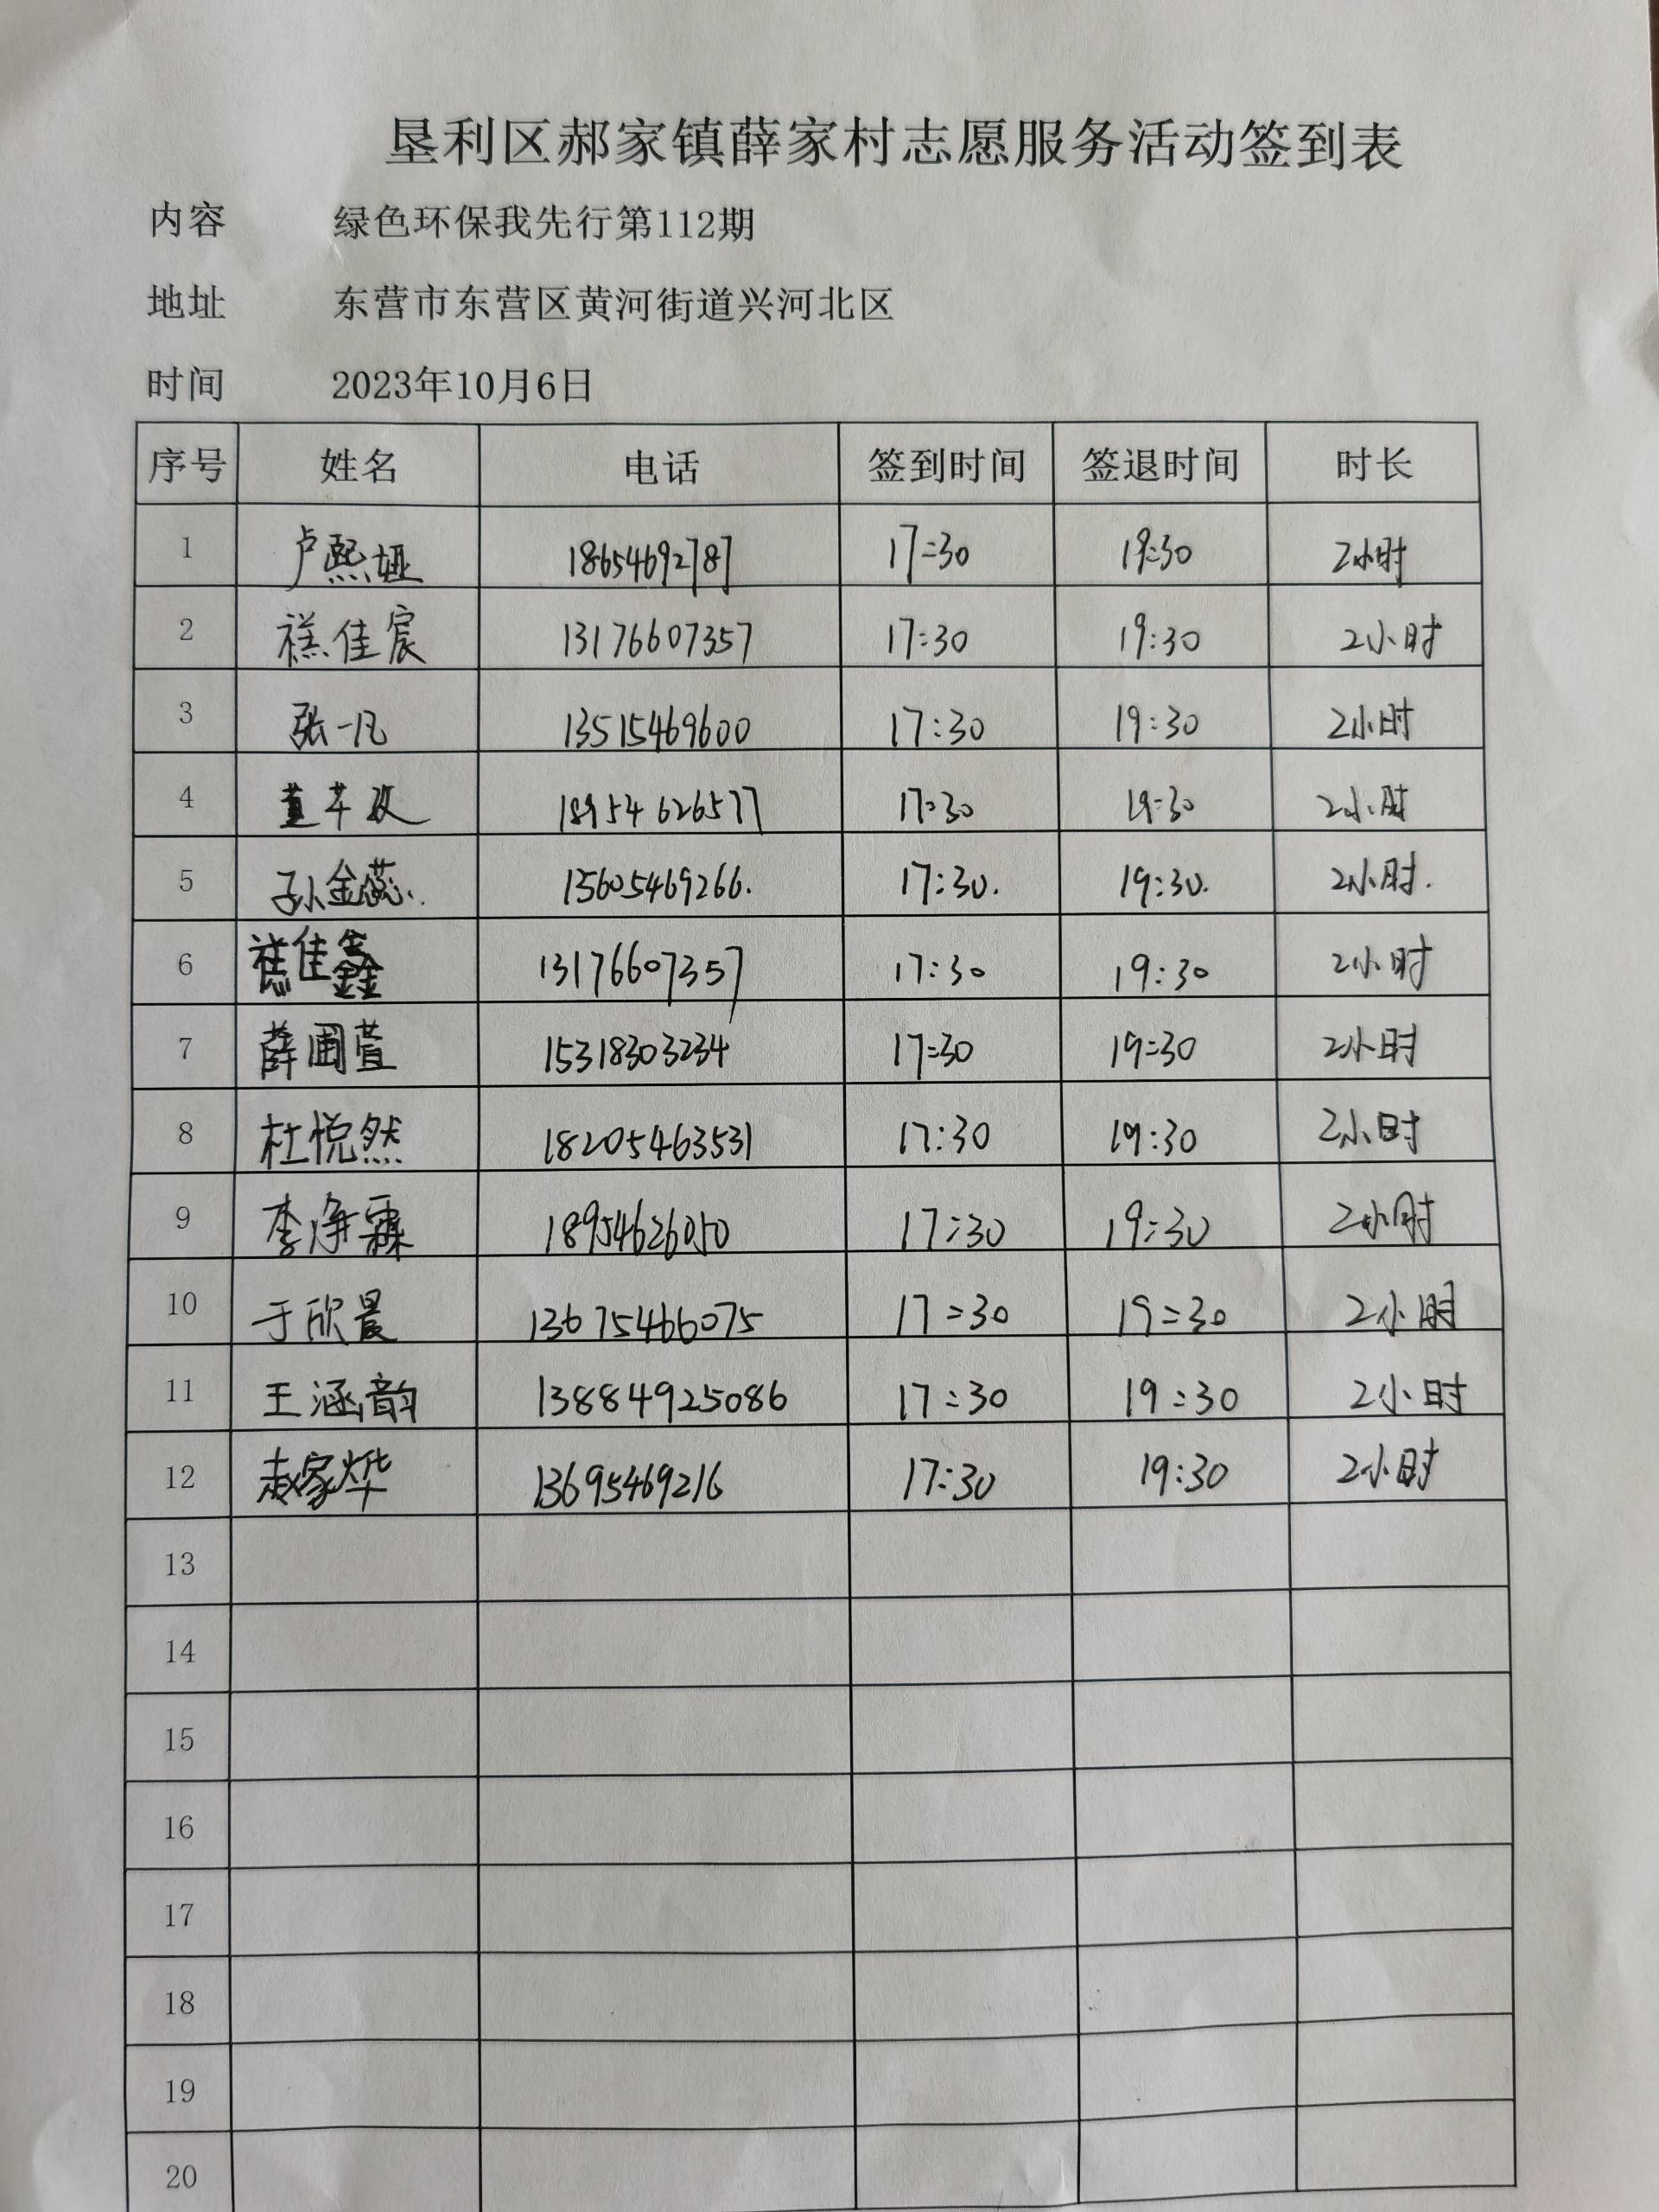 垦利区郝家镇薛家村志愿服务活动签到表
内容 绿色环保我先行第112期
地址 东营市东营区黄河街道兴河北区
时间 2023年10月6日
序号 姓名 电话 签到时间 签退时间 时长
1 卢熙娅 18654692787 17:30 19:30 2小时
2 禚佳宸 13176607357 17:30 19:30 2小时
3 张一凡 13515469600 17:30 19:30 2小时
4 董 18954626577 17:30 19:30 2小时
5 孙金蕊 15605469266. 17:30. 19:30. 2小时.
6 禚佳鑫 13176607357 17:30 19:30 2小时
7 薛圃萱 15318303234 17:30 19:30 2小时
8 杜悦然 18205463531 17:30 19:30 2小时
9 李净霖 18954626050 17:30 19:30 2小时
10 于欣晨 13675466075 17:30 19:30 2小时
11 王涵韵 13884925086 17:30 19:30 2小时
12 赵家烨 13695469216 17:30 19:30 2小时
13
14
15
16
17
18
19
20